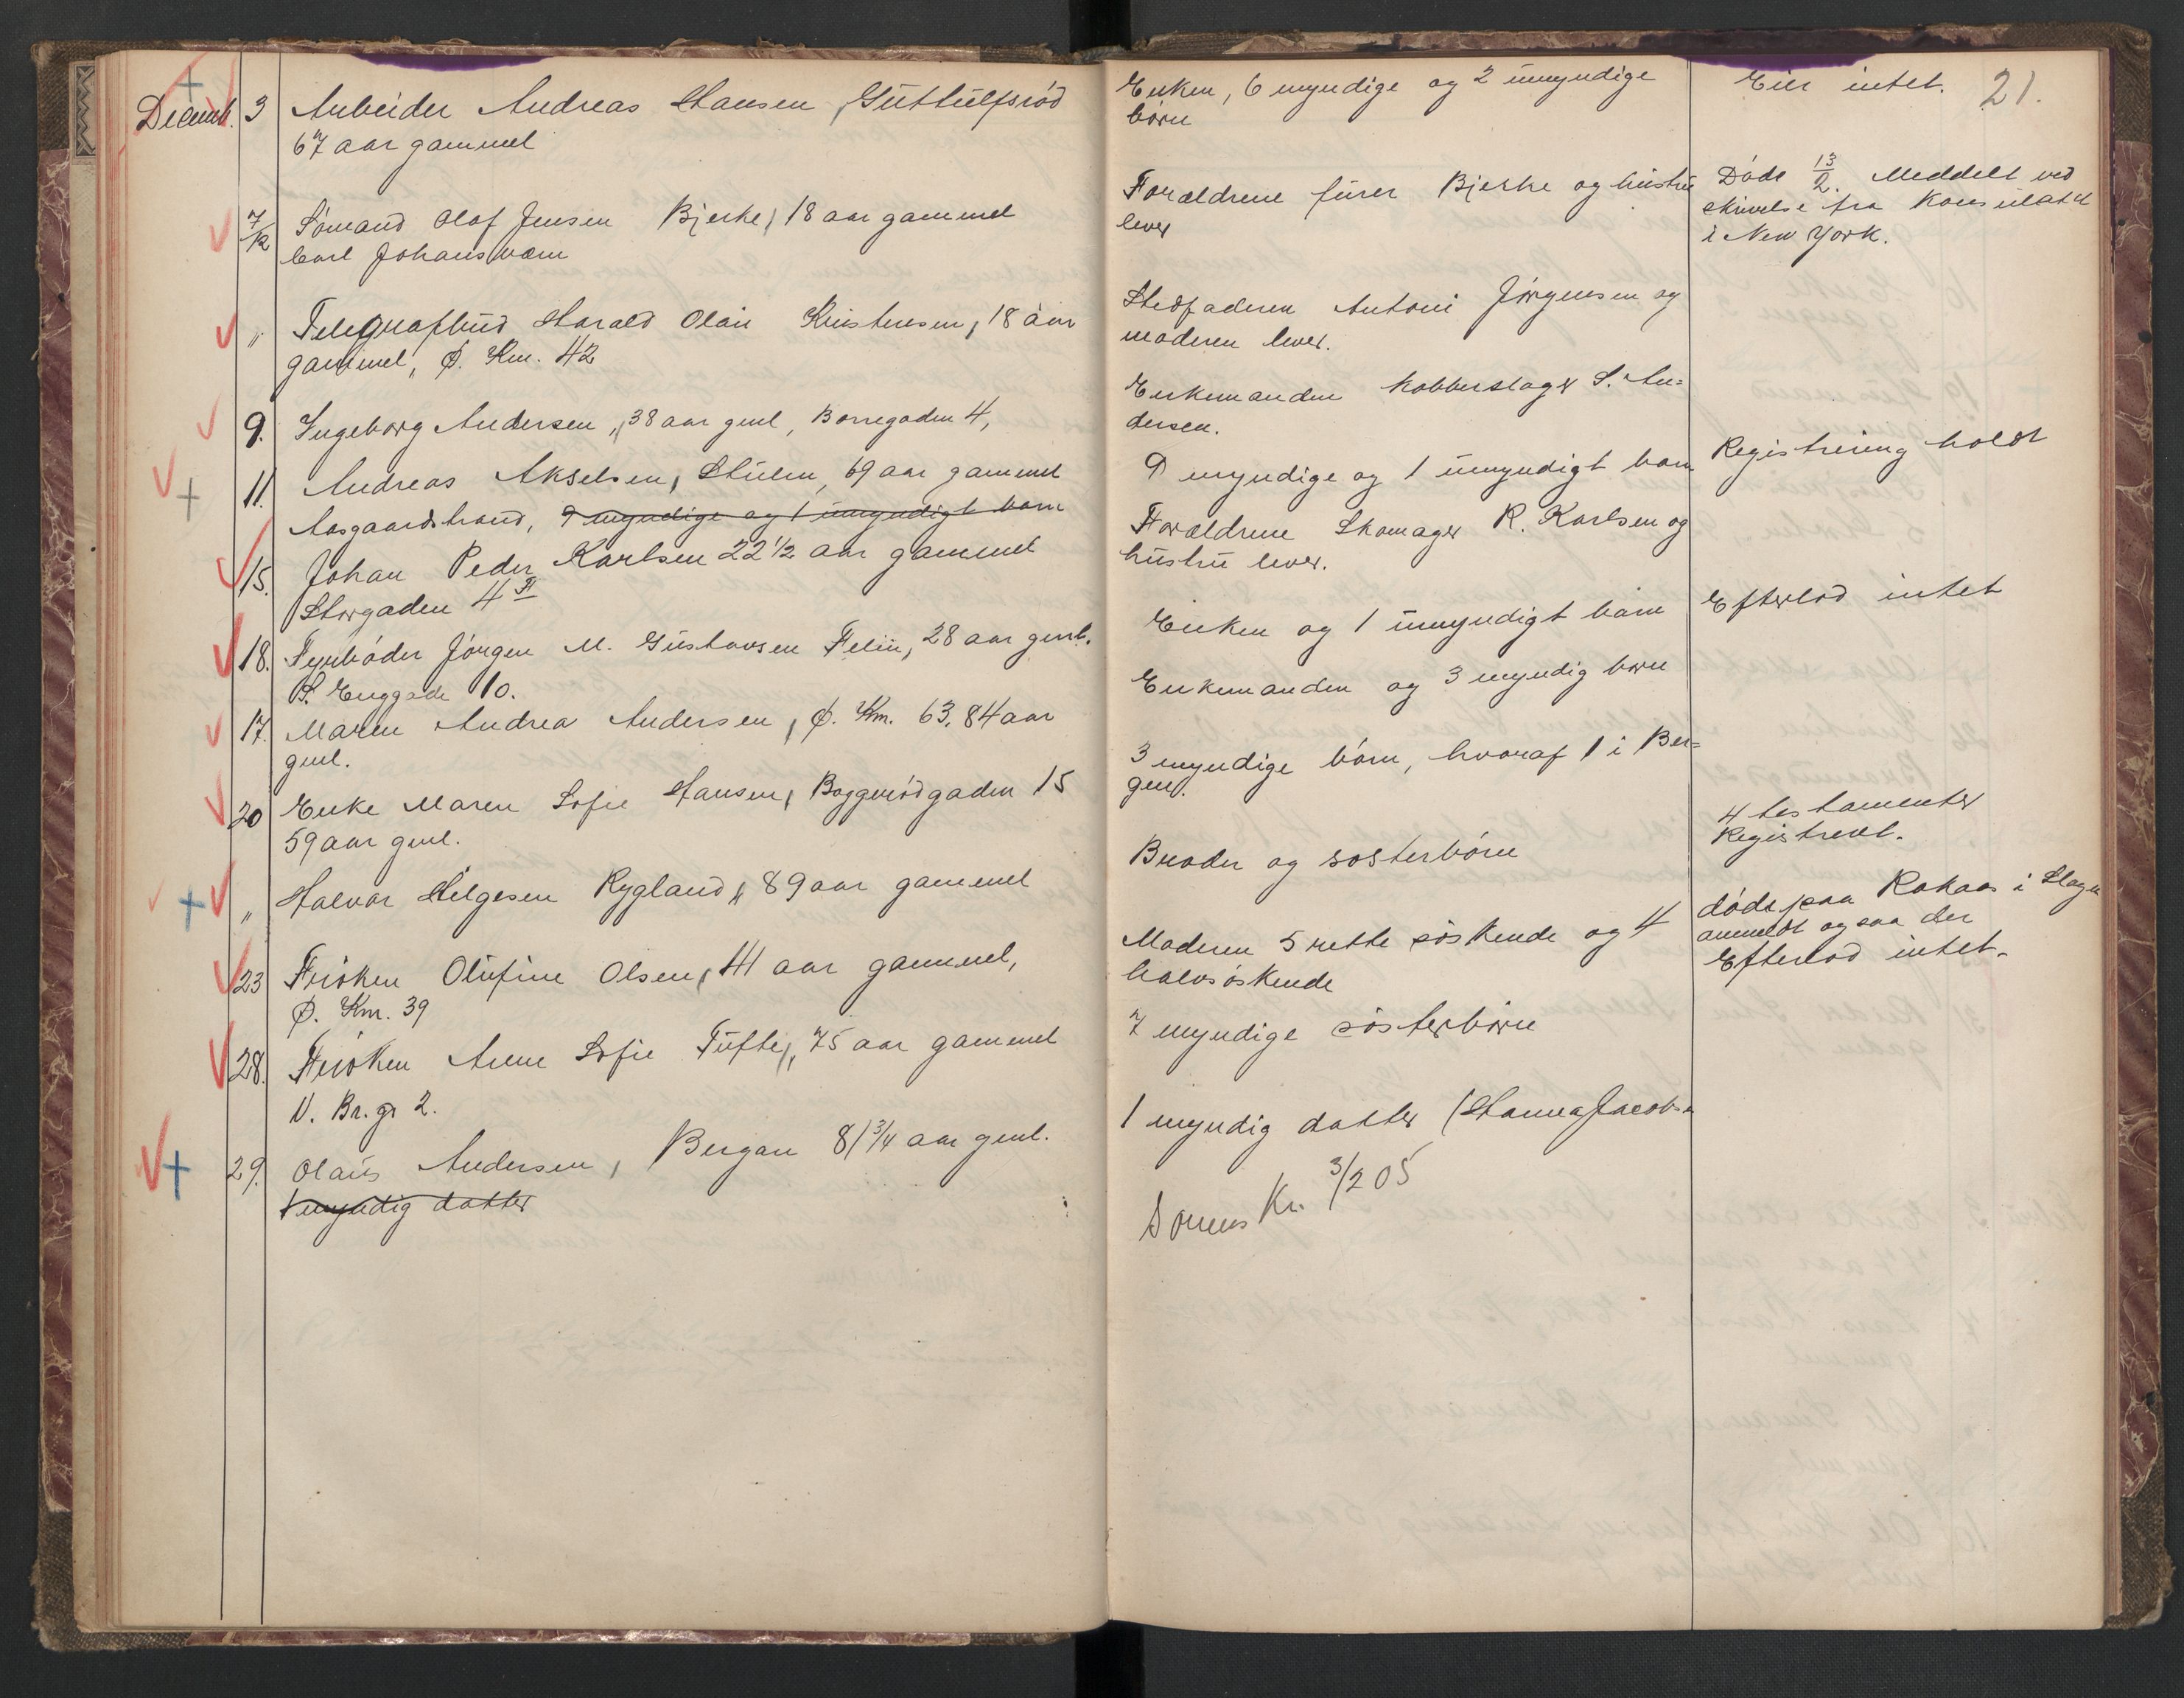 21.
Decemb. 3 Arbeider Andreas Hansen, Guttulfsrød
67 aar gammel
7/12 Sømand Olaf Jensen Bjerke, 18 aar gammel
Carl Johansværn
" Telegrafbud Harald Olai Kristensen, 18 aar
gammel, Ø. Km. 42
9. Ingeborg Andersen, 38 aar gml, Borregaden 4,
11. Andreas Akselsen, 69 aar gammel
Aasgaardstrand, 9 myndige og 1 umyndigt barn
15. Johan Peder Karlsen 22 1/2 aar gammel
Storgaden 4
18. Fyrbøder Jørgen M. Gustavsen 28 aar gml.
S. Enggade 10.
17. Maren Andrea Andersen, Ø. Km. 63, 84 aar
gml.
20 Enke Maren Sofie Hansen, Baggerødgaden 15
59 aar gml.
" Halvor Helgesen Rygland, 89 aar gammel
23 Frøken Olufine Olsen, 41 aar gammel,
Ø. Km. 39
28. Frøken Anne Sofie Tufte, 75 aar gammel
N. Br. g. 2.
29. Olaus Andersen, Bergan 81 3/4 aar gml.
1 myndig datter
Enken, 6 myndige og 2 umyndige
børn
Forældrene fører Bjerke og hustru
lever
Stedfaderen Antoni Jørgensen og
moderen lever.
Enkemanden kobberslager S. An=
dersen.
9 myndige og 1 umyndigt barn
Forældrene Skomager R. Karlsen og
hustru lever.
Enken og 1 umyndigt barn
Enkemanden og 3 myndig børn
3 myndige børn, hvoraf 1 i Ber=
gen.
Broder og søsterbørn
Moderen 5 rette søskende og 4
halvsøskende
7 myndige søsterbørn
1 myndig datter (Hanna Jacobsen
Kr. 3/2 05
Eier intet.
Døde 13/2. Meddelt ved
skrivelse fra Konsulatet
i New York.
Registrering holdt
Efterlod intet
4 testamenter
Registreret.
døde paa Rakaas i Slagen
anmeldt ogsaa der
Efterlod intet.